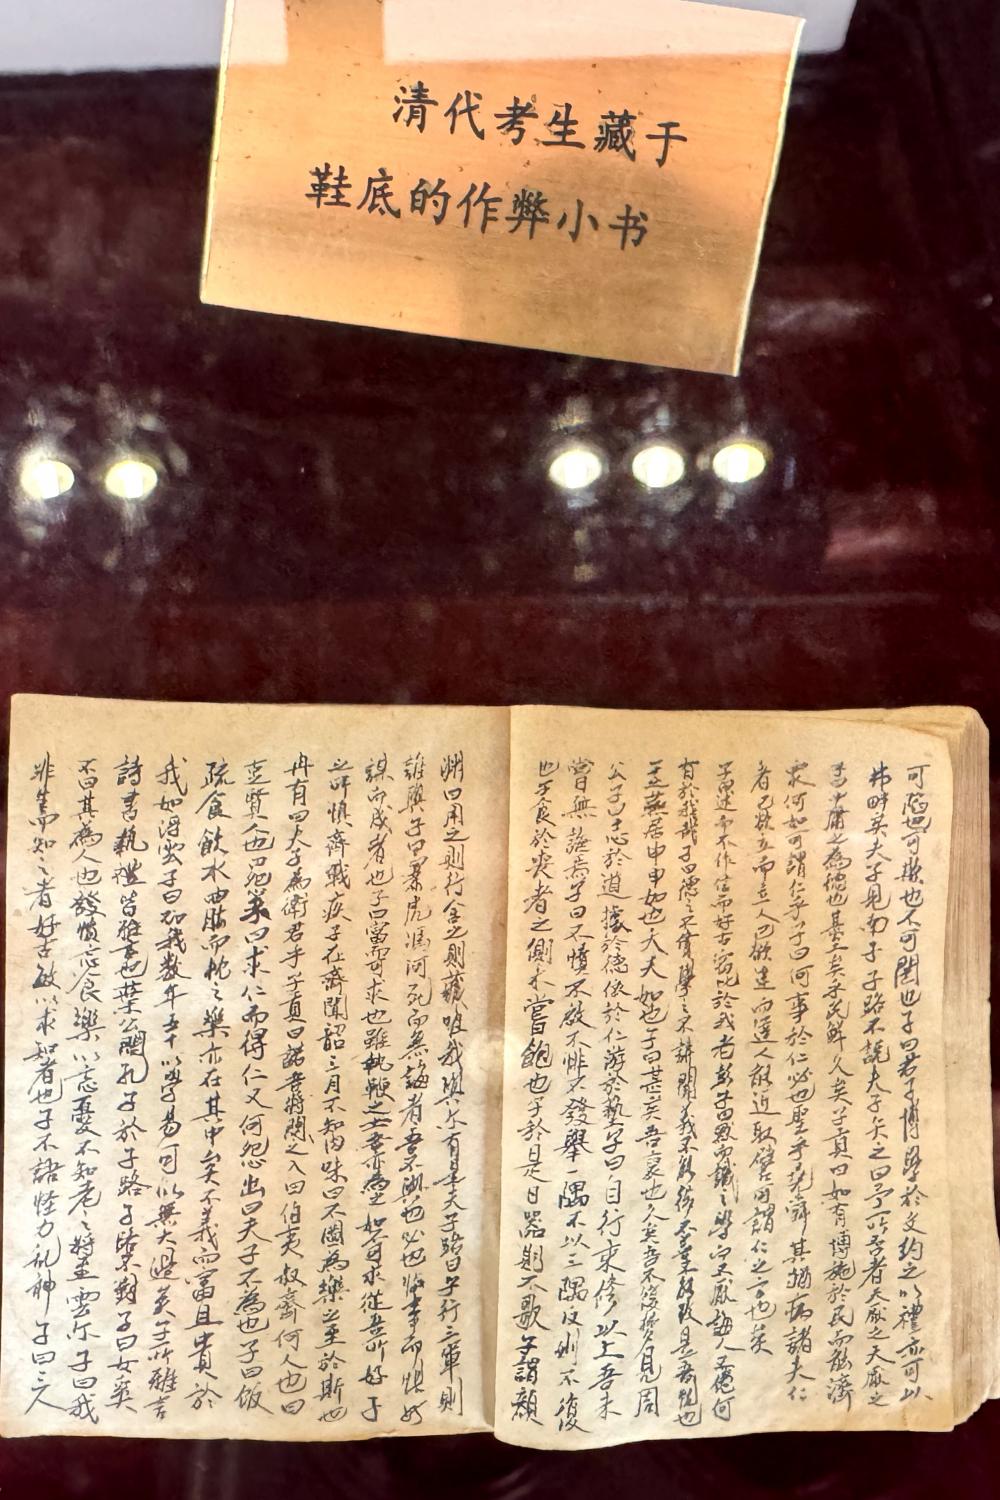 清代考生藏于
鞋底的作弊小书
可陷也可欺也不可罔也子曰君子博學於文約之以禮亦可以
弗畔矣夫子見南子子路不說夫子矢之曰予所否者天厭之天厭之
中庸之為德也其至矣乎民鮮久矣子貢曰如有博施於民而能濟
眾何如可謂仁乎子曰何事於仁必也聖乎堯舜其猶病諸夫仁
者己欲立而立人己欲達而達人能近取譬可謂仁之方也矣
子曰述而不作信而好古竊比於我老彭子曰默而識之學而不厭誨人不倦何
有於我哉子曰德之不脩學之不講聞義不能徙不善不能改是吾憂也
子燕居申申如也夭夭如也子曰甚矣吾衰也久矣吾不復夢見周
公子曰志於道據於德依於仁游於藝子曰自行束脩以上吾未
嘗無誨焉子曰不憤不啟不悱不發舉一隅不以三隅反則不復
也子食於喪者之側未嘗飽也子於是日哭則不歌子謂顏
淵曰用之則行舍之則藏唯我與尔有是夫子路曰子行三軍則
誰與子曰暴虎馮河死而無悔者吾不與也必也臨事而惧好
謀而成者也子曰富而可求也雖執鞭之士吾亦為之如不可求從吾所好子
之所慎齊戰疾子在齊聞韶三月不知肉味曰不圖為樂之至於斯也
冉有曰夫子為衛君乎子貢曰諾吾將問之入曰伯夷叔齊何人也曰
古賢人也曰怨乎曰求仁而得仁又何怨出曰夫子不為也子曰飯
疏食飲水曲肱而枕之樂亦在其中矣不義而富且貴於
我如浮雲子曰加我数年五十以學易可以無大過矣子所雅言
詩書執禮皆雅言也葉公問孔子於子路子路不對子曰女奚
不曰其為人也發憤忘食樂以忘憂不知老之將至雲尔子曰我
非生而知之者好古敏以求知者也子不語怪力乱神子曰三人